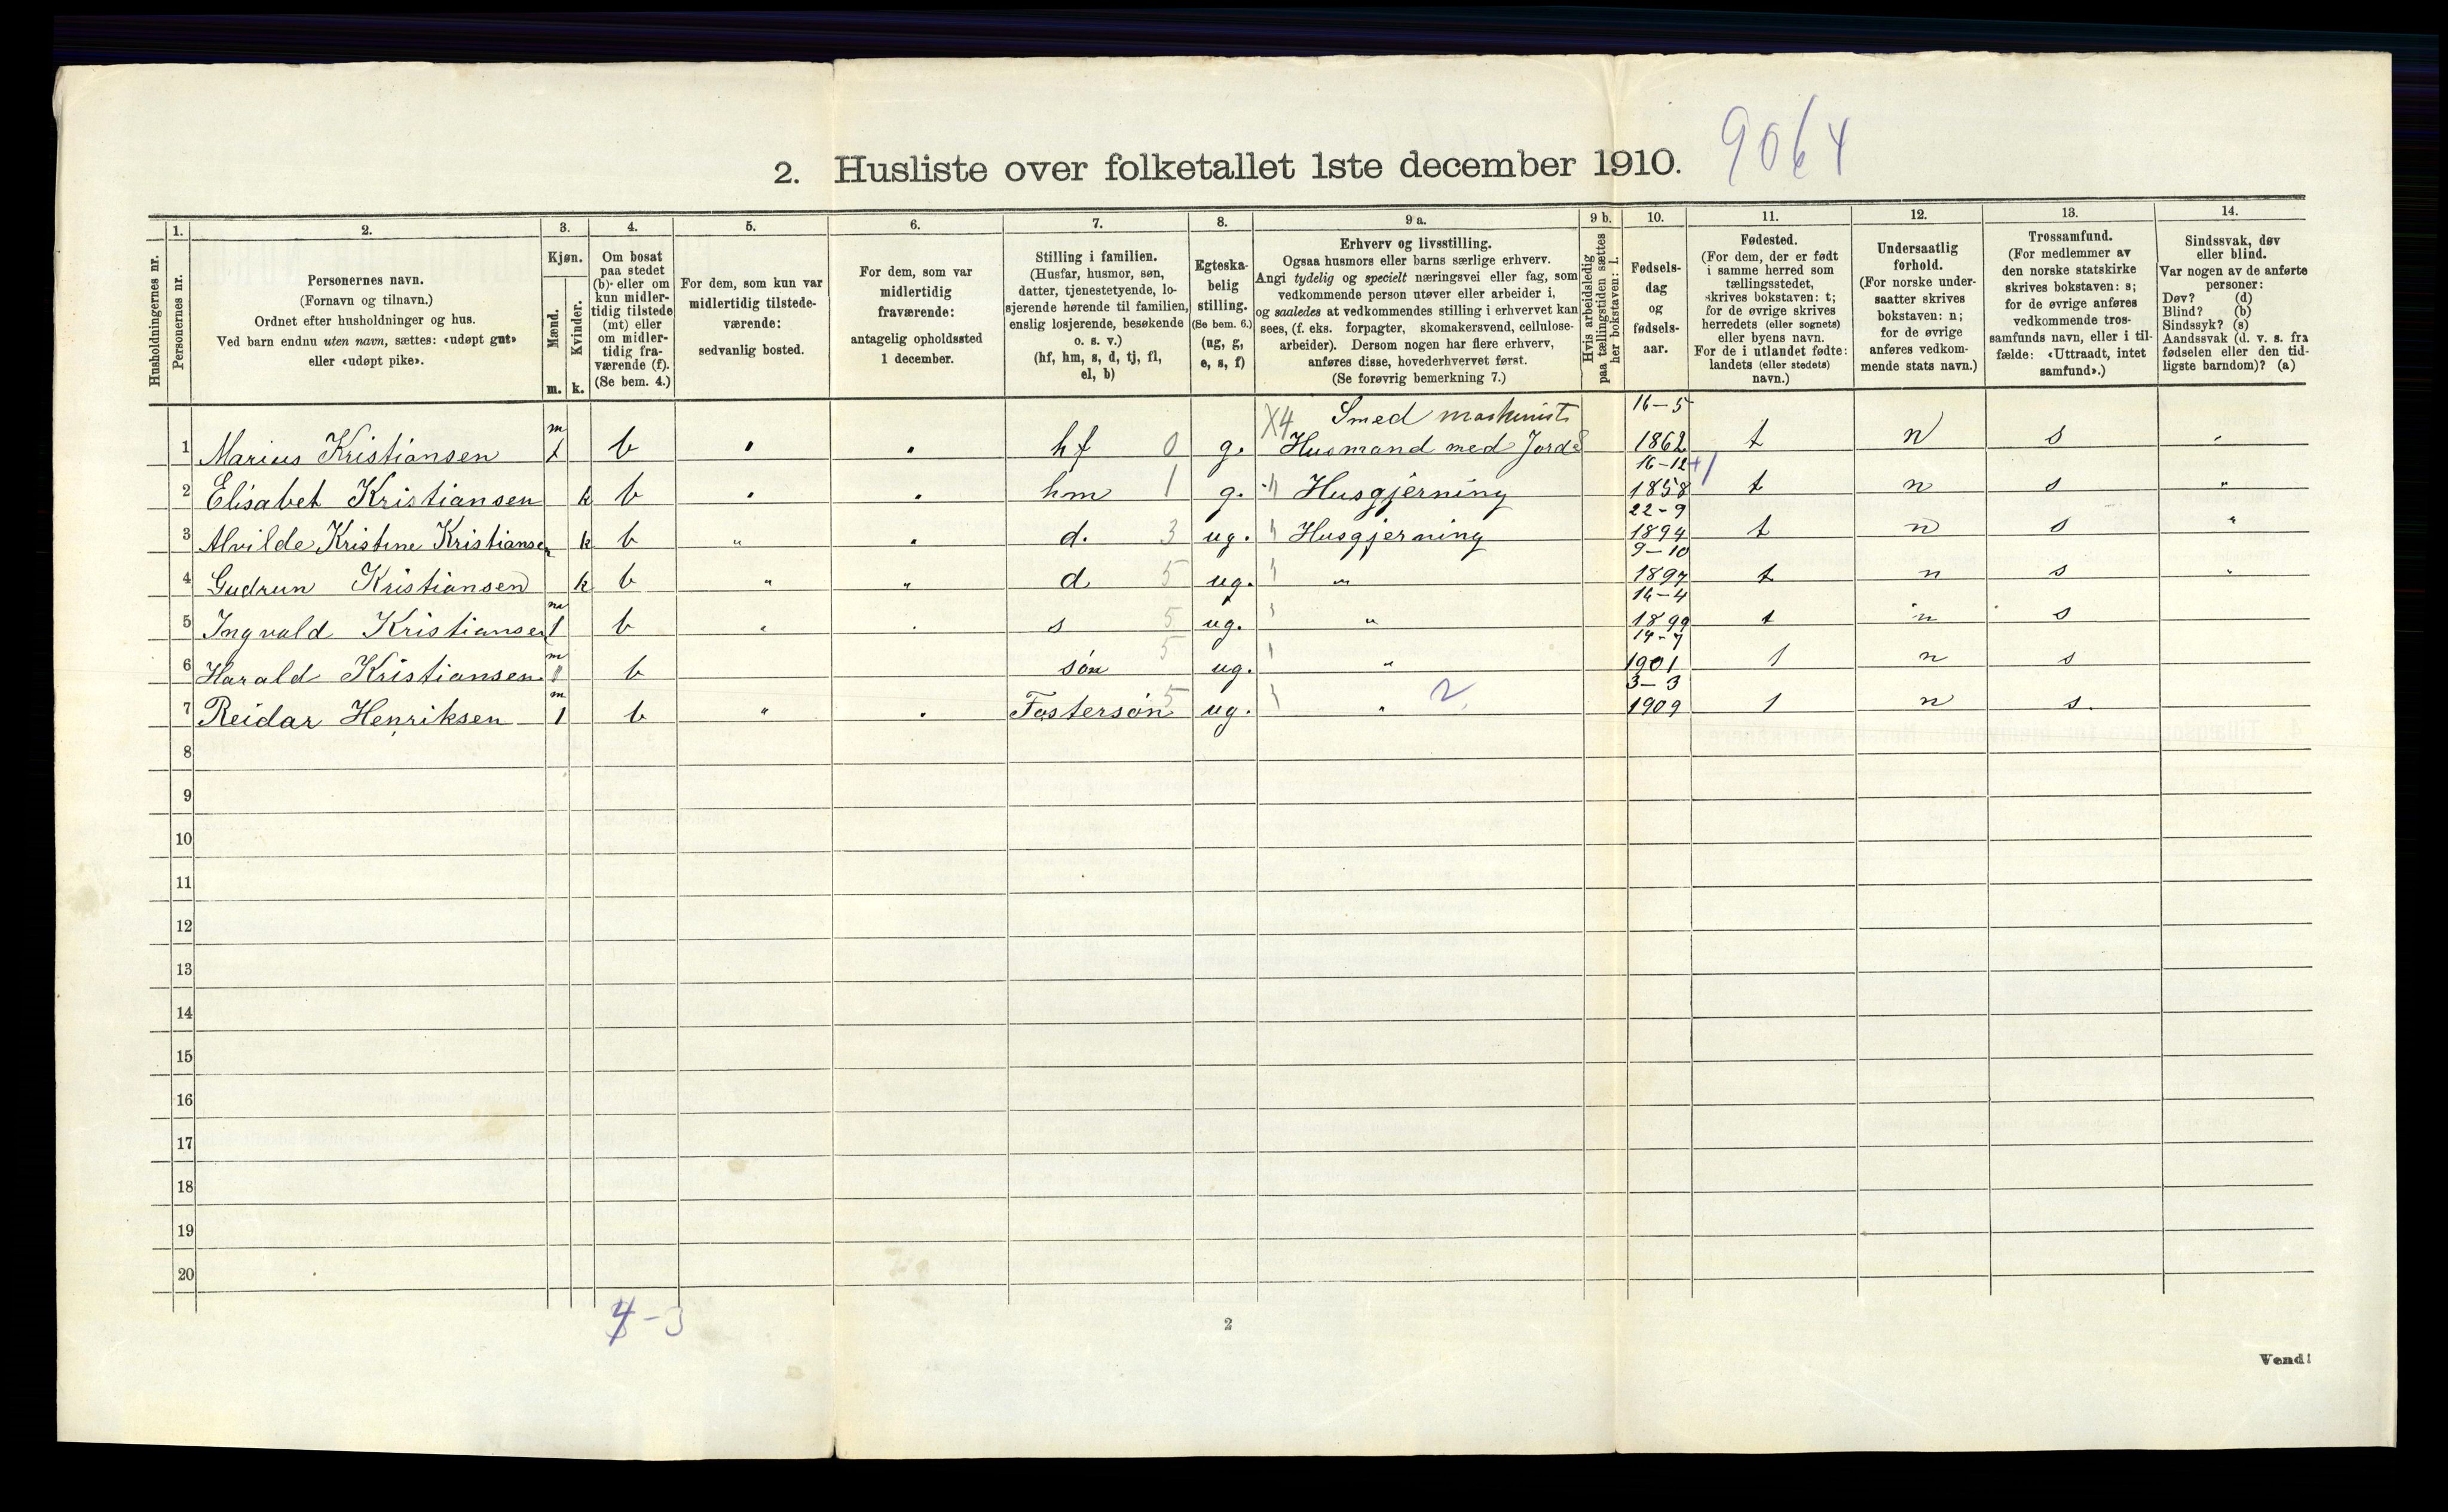 2. Husliste over folketallet 1ste december 1910. 9064
Husholdningernes nr.
1. Personernes nr.
2. Personernes navn.
(Fornavn og tilnavn.)
Ordnet efter husholdninger og hus.
Ved barn endnu uten navn, sættes: «udøpt gut»
eller «udøpt pike».
3. Kjøn.
Mænd. m.
Kvinder. k.
4. Om bosat
paa stedet
(b) eller om
kun midler-
tidig tilstede
(mt) eller
om midler-
tidig fra-
værende (f).
(Se bem. 4.)
5. For dem, som kun var
midlertidig tilstede-
værende:
sedvanlig bosted.
6. For dem, som var
midlertidig
fraværende:
antagelig opholdssted
1 december.
7. Stilling i familien.
(Husfar, husmor, søn,
datter, tjenestetyende, lo-
sjerende hørende til familien,
enslig losjerende, besøkende
o. s. v.)
(hf, hm, s, d, tj, fl,
el, b)
8. Egteska-
belig
stilling.
(Se bem. 6.)
(ug, g,
e, s, f)
9 a. Erhverv og livsstilling.
Ogsaa husmors eller barns særlige erhverv.
Angi tydelig og specielt næringsvei eller fag, som
vedkommende person utøver eller arbeider i,
og saaledes at vedkommendes stilling i erhvervet kan
sees, (f. eks. forpagter, skomakersvend, cellulose-
arbeider). Dersom nogen har flere erhverv,
anføres disse, hovederhvervet først.
(Se forøvrig bemerkning 7.)
9 b. Hvis arbeidsledig
paa tællingstiden sættes
her bokstaven: l.
10. Fødsels-
dag
og
fødsels-
aar.
11. Fødested.
(For dem, der er født
i samme herred som
tællingsstedet,
skrives bokstaven: t;
for de øvrige skrives
herredets (eller sognets)
eller byens navn.
For de i utlandet fødte:
landets (eller stedets)
navn.)
12. Undersaatlig
forhold.
(For norske under-
saatter skrives
bokstaven: n;
for de øvrige
anføres vedkom-
mende stats navn.)
13. Trossamfund.
(For medlemmer av
den norske statskirke
skrives bokstaven: s;
for de øvrige anføres
vedkommende tros-
samfunds navn, eller i til-
fælde: «Uttraadt, intet
samfund».)
14. Sindssvak, døv
eller blind.
Var nogen av de anførte
personer:
Døv? (d)
Blind? (b)
Sindssyk? (s)
Aandssvak (d. v. s. fra
fødselen eller den tid-
ligste barndom)? (a)
X4 Smed maskinist 16-5
1 Marius Kristiansen m b hf 0 g. Husmand med Jord 1862 t n s
16-12
2 Elisabet Kristiansen k b hm 1 g. Husgjerning 1858 t n s "
22-9
3 Alvilde Kristine Kristiansen k b " d. 3 ug. Husgjerning 1894 t n s "
9-10
4 Gudrun Kristiansen k b " " d 5 ug. " 1897 t n s "
16-4
5 Ingvald Kristiansen m 1 b " s 5 ug. " 1899 t n s
14-7
6 Harald Kristiansen m b søn 5 ug. " 1901 1 n s
3-3
7 Reidar Henriksen m 1 b " Fostersøn 5 ug. " 2 1909 1 n s.
8
9
10
11
12
13
14
15
16
17
18
19
20
4-3
2
Vend!